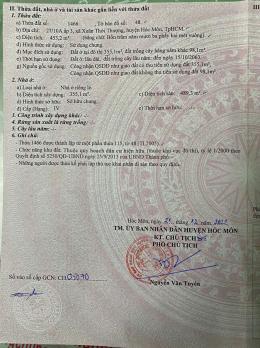 II. Thửa đất, nhà ở và tài sản khác gắn liền với thửa đất
1. Thửa đất:
a) Thửa đất số: 1466 Tờ bản đồ số: 48.
b) Địa chỉ: ấp 3, xã Xuân Thới Thượng, huyện Hóc Môn, TpHCM.
c) Diện tích: 453,2 m² (bằng chữ: Bốn trăm năm mươi ba phẩy hai mét vuông).
d) Hình thức sử dụng: Sử dụng chung
đ) Mục đích sử dụng: Đất ở tại đô thị 355,1m², đất trồng cây hàng năm 98,1m².
e) Thời hạn sử dụng: Đất ở: lâu dài, đất cây hàng năm: đến ngày 15/10/2063.
g) Nguồn gốc sử dụng: Công nhận QSDĐ như giao đất có thu tiền sử dụng đất 355,1m²,
Công nhận QSDĐ như giao đất không thu tiền sử dụng đất 98,1m².
2. Nhà ở:
a) Loại nhà ở: Nhà ở riêng lẻ
b) Diện tích xây dựng: 355,1 m². c) Diện tích sàn: m².
d) Hình thức sở hữu: Sở hữu chung.
đ) Cấp (Hạng): IV e) Thời hạn sở hữu:
3. Công trình xây dựng khác: -/-
4. Rừng sản xuất là rừng trồng: -/-
5. Cây lâu năm: -/-
6. Ghi chú:
- Thửa 1466 được thành lập từ một phần thửa 115, tờ 48 (TL2005).
- Chức năng khu đất: Thuộc quy hoạch dân cư hiện hữu, tỷ lệ 1/2000 theo
Quyết định số 5250/QĐ-UBND ngày 25/9/2013 của UBND Thành phố.
Hóc Môn, ngày
TM. ỦY BAN NHÂN DÂN HUYỆN HÓC MÔN
KT. CHỦ TỊCH
PHÓ CHỦ TỊCH
Nguyễn Văn Tuyên
Số vào sổ cấp GCN: CH